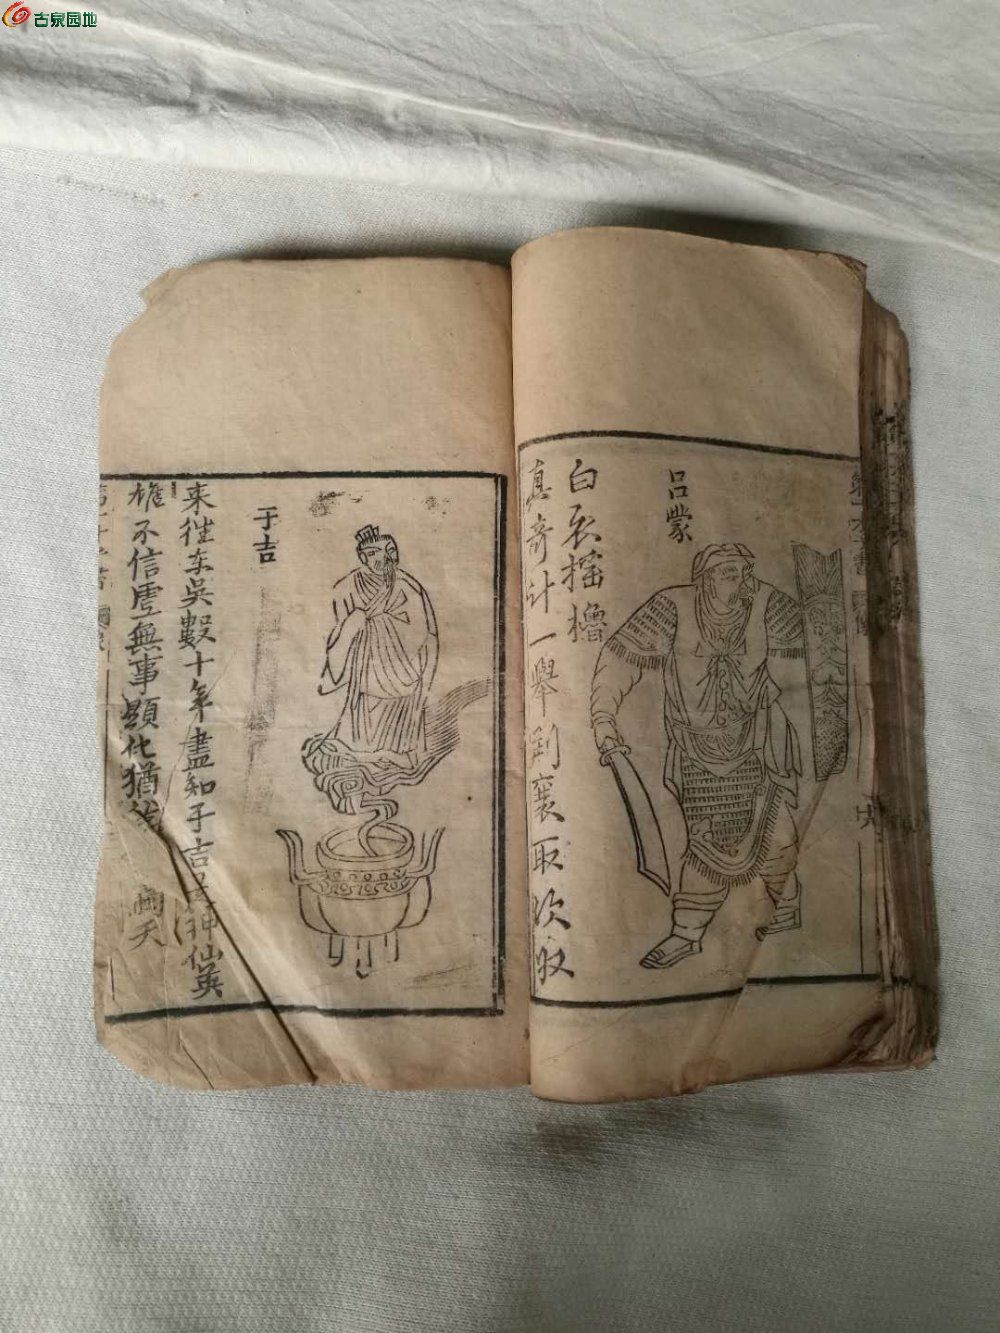 古泉园地
呂蒙
白衣搖櫓
真奇計一舉荆襄取次收
于吉
来往东吳數十年盡知于吉神仙英
雄不信虛無事顯化猶天